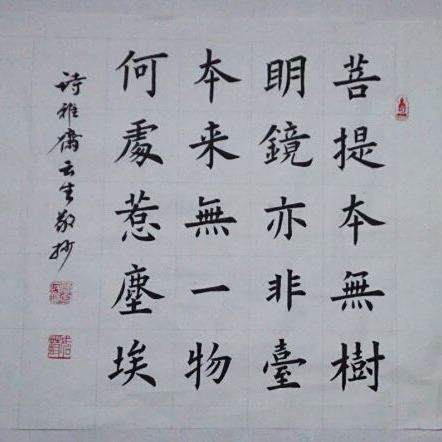 菩提本無樹
明鏡亦非臺
本来無一物
何處惹塵埃
詩雅齋云生敬抄